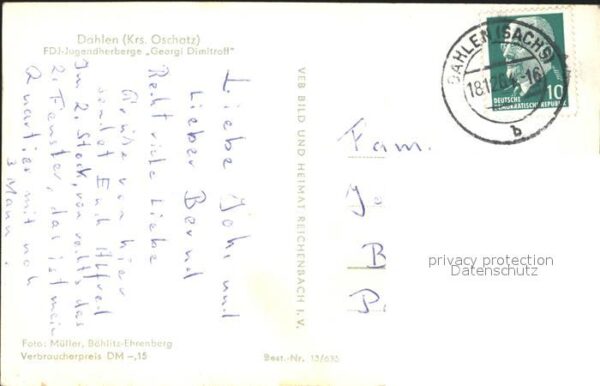 Dahlen (Krs. Oschatz)
FDJ-Jugendherberge „Georgi Dimitroff"
Liebe Joh. und
Lieber Bernd
Recht viele Liebe
Grüße von hier
sendet Euch
Im 2. Stock, von rechts das
2. Fenster, das ist mein
Quartier mit noch
3 Mann.
Foto: Müller, Böhlitz-Ehrenberg
Verbraucherpreis DM -,15
VEB BILD UND HEIMAT REICHENBACH I. V.
Best.-Nr. 13/636
DAHLEN (SACHS)
18.12.6
-16
b
10
DEUTSCHE
DEMOKRATISCHE REPUBLIK
Fam.
Jo
B
P.
privacy protection
Datenschutz